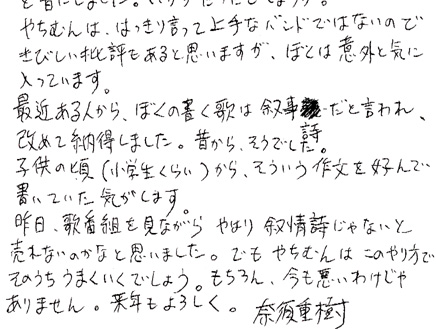 やちむんは、はっきり言って上手なバンドではないので
きびしい批評もあると思いますが、ぼくは意外と気に
入っています。
最近ある人から、ぼくの書く歌は叙事詩だと言われ、
改めて納得しました。昔から、そうでした。
子供の頃(小学生くらい)から、そういう作文を好んで
書いていた気がします。
昨日、歌番組を見ながら やはり 叙情詩じゃないと
売れないのかなと思いました。でも やちむんは このやり方で
そのうちうまくいくでしょう。もちろん、今も悪いわけじゃ
ありません。来年もよろしく。 奈須重樹